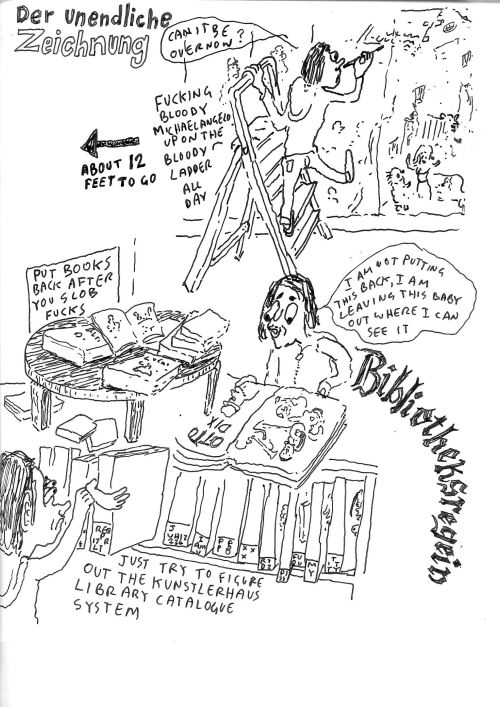 Der unendliche
Zeichnung
CAN IT BE
OVER NOW?
FUCKING
BLOODY
MICHAELANGELO
UP ON THE
BLOODY
LADDER
ALL
DAY
ABOUT 12
FEET TO GO
PUT BOOKS
BACK AFTER
YOU SLOB
FUCKS
I AM NOT PUTTING
THIS BACK, I AM
LEAVING THIS BABY
OUT WHERE I CAN
SEE IT
OTTO
DIX
Bibliotheksregeln
JUST TRY TO FIGURE
OUT THE KUNSTLERHAUS
LIBRARY CATALOGUE
SYSTEM